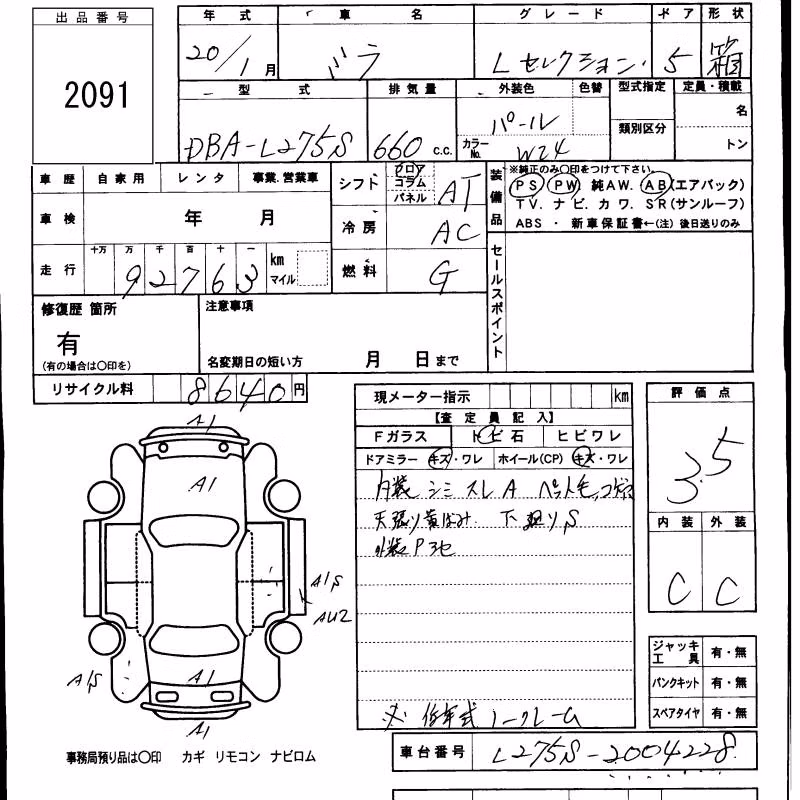 出品番号
2091
年式 車名 グレード ドア 形状
20/1月 ミラ Lセレクション. 5 箱
型式 排気量 外装色 色替 型式指定 定員・積載
DBA-L275S 660 c.c. パール 類別区分 名
カラーNo. W24 トン
車歴 自家用 レンタ 事業.営業車
シフト フロア コラム パネル AT
装備品 ※純正のみ〇印をつけて下さい。
PS PW 純AW. AB(エアバック)
TV. ナビ. カワ. SR(サンルーフ)
ABS ・ 新車保証書←(注) 後日送りのみ
車検 年 月
冷房 AC
走行 十万 万 千 百 十 一
92763 km マイル
燃料 G
セールスポイント
修復歴 箇所
有
(有の場合は〇印を)
注意事項
名変期日の短い方 月 日まで
リサイクル料 8640円
現メーター指示 km
【査定員記入】
Fガラス トビ石 ヒビワレ
ドアミラー キズ・ワレ ホイール(CP) キズ・ワレ
内装 シミ スレ A ペット毛,コゲ
天張り黄ばみ. 下廻りS
外装P
※ 低年式 ノークレーム
評価点
3.5
内装 外装
C C
ジャッキ工具 有・無
パンクキット 有・無
スペアタイヤ 有・無
A1
A1
A1S
AU2
A1S
A1
A1
事務局預り品は〇印 カギ リモコン ナビロム
車台番号 L275S-2004228